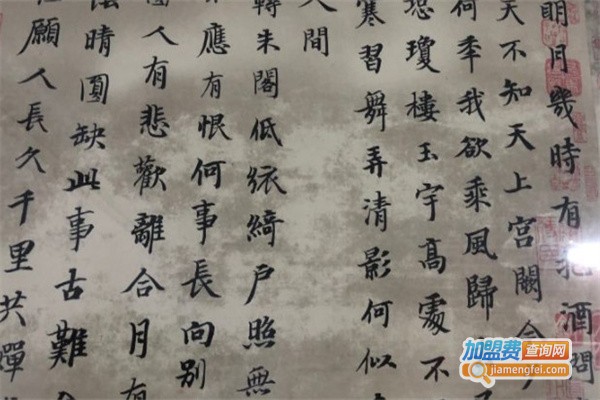 明月幾時有把酒問
天不知天上宮闕今
何秊我欲乘風歸
恐瓊樓玉宇高處不
寒習舞弄清影何似
人間
轉朱閣低綺戶照無
應有恨何事長向別
人有悲歡離合月有
陰晴圓缺此事古難
願人長久千里共嬋
加盟费查询网
www.jiamengfei.com